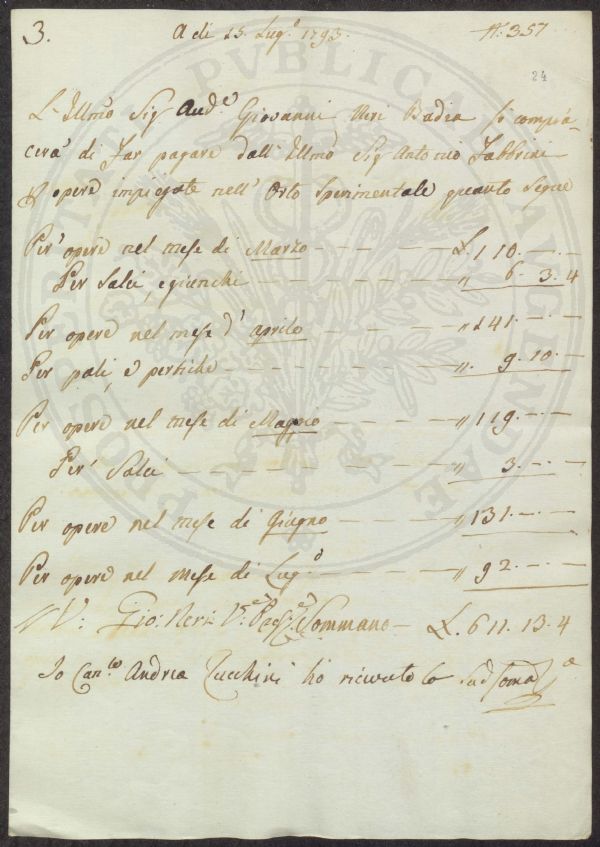 3.
A di 15. Lug.o 1793.
N.o 357
24
L'Illmo Sig Aud.e Giovanni Neri Badia si compia=
cerà di far pagare dall' Illmo Sig Antonio Fabbrini
opere impiegate nell' Orto Sperimentale quanto segue
Per opere nel mese di Marzo - - - - - £. 110. - . -
Per Salci, e giunchi - - - - - " 6. 3. 4
Per opere nel mese d' aprile - - - - " 141. - . -
Per pali, e pertiche - - - - - " 9. 10. -
Per opere nel mese di Maggio - - - - " 119. - . -
Per Salci - - - - - " 3. - . -
Per opere nel mese di Giugno - - - - " 131. - . -
Per opere nel mese di Lug.o - - - - " 92. - . -
V: Gio: Neri Sommano - £. 611. 13. 4
Io Can.co Andrea Zucchini ho ricevuto la sud Soma
PROSPERITATI PUBLICAE AUGENDAE